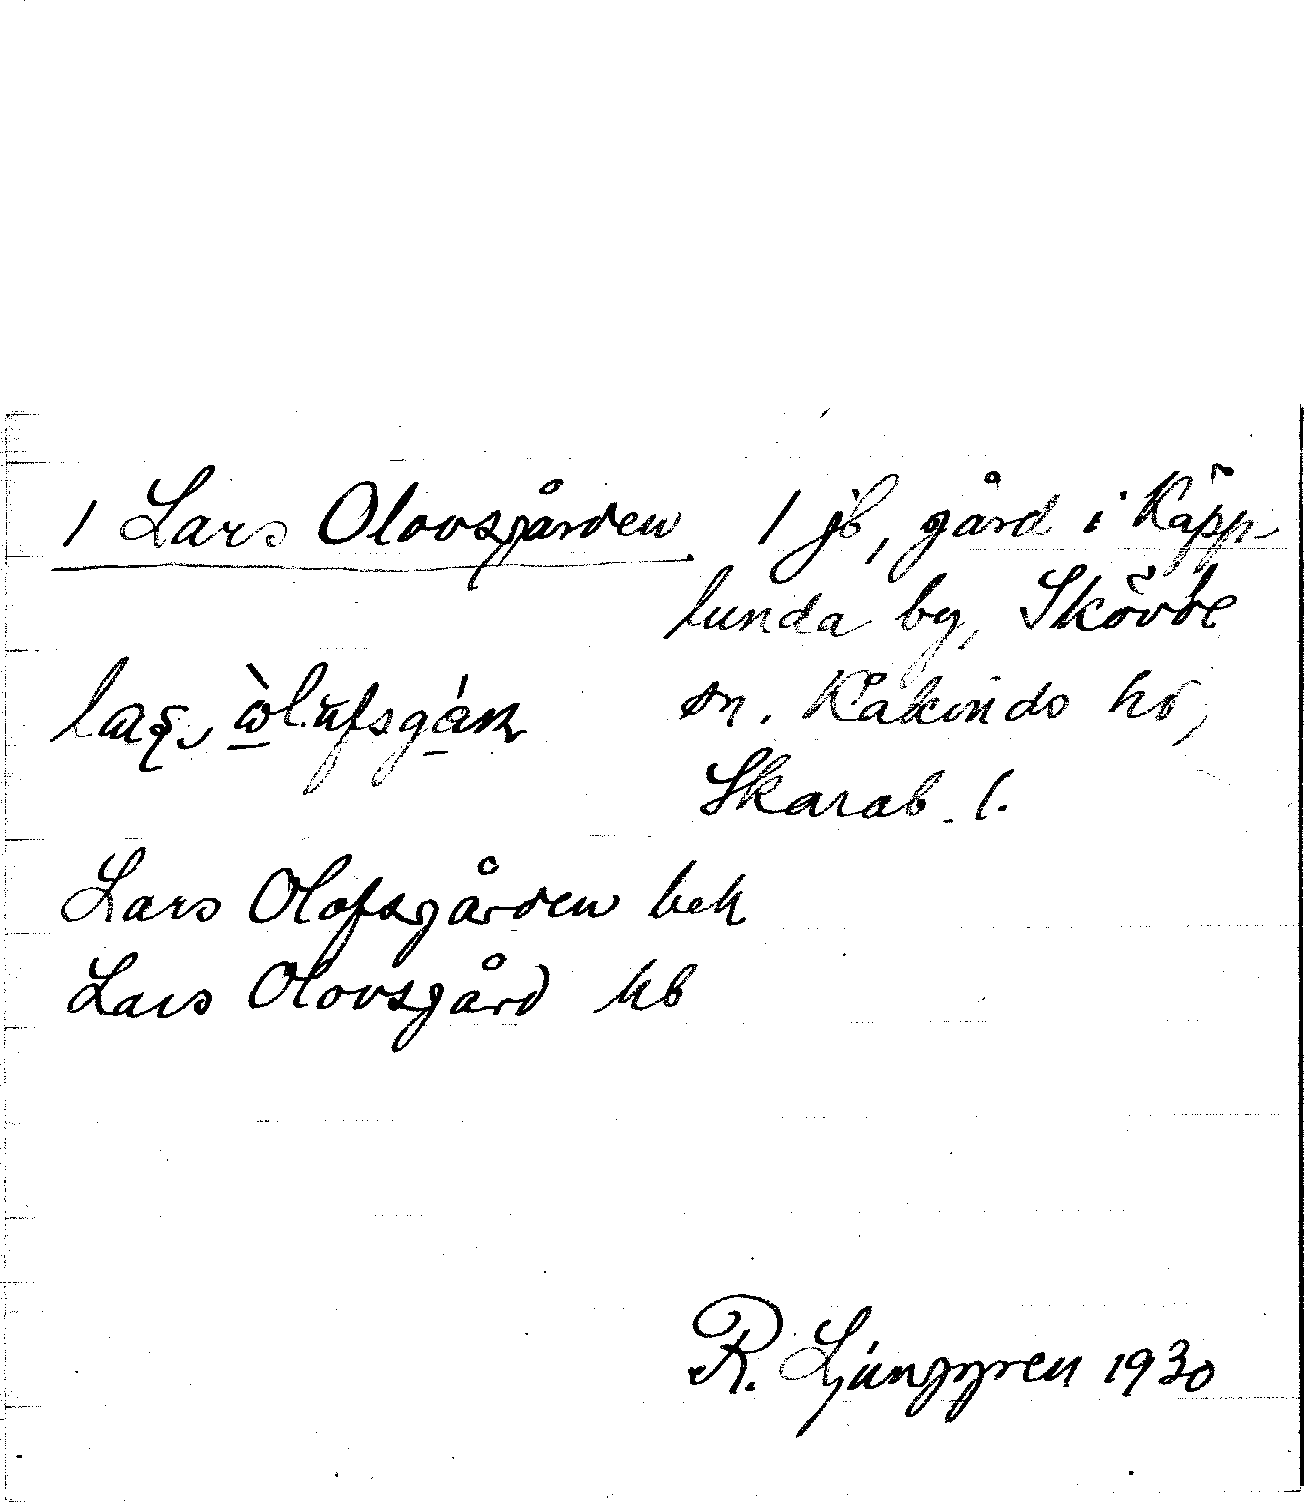 1 Lars Olovsgården
1 jb, gård i Käpp-
lunda by, Skövde
sn. Kåkinds hd,
Skarab. l.
Lars Olofsgården bek
Lars Olovsgård kb
R. Ljunggren 1930